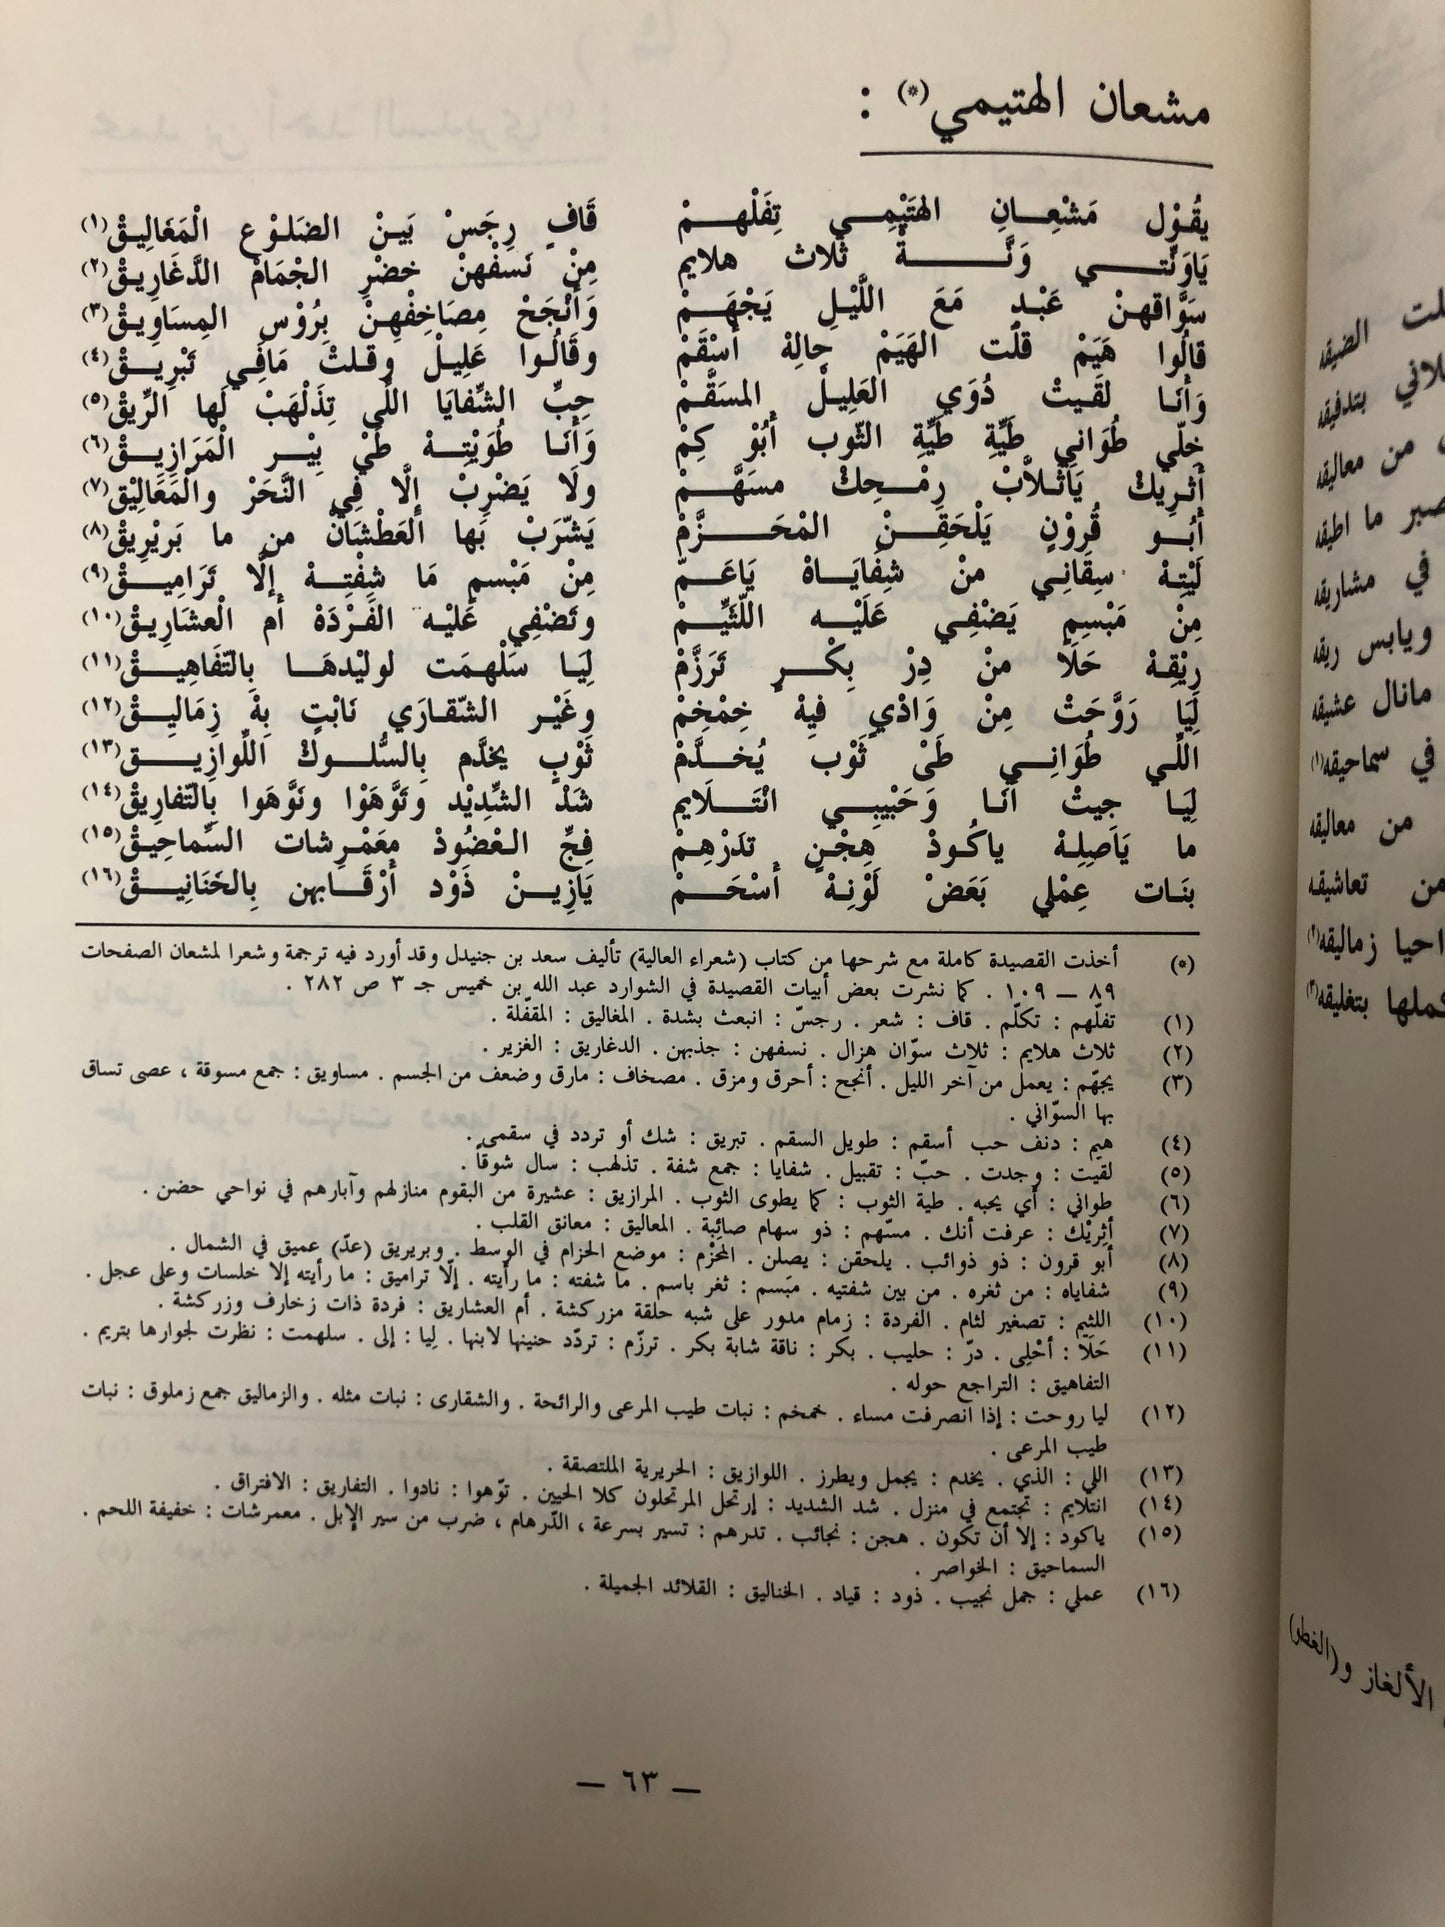 مشعان الهتيمي(*) :
يقُوْل مَشْعِانِ الهتَيْمِي تِفَلْهمْ قَافٍ رِجَسْ بَينْ الضَلوْع الْمَغَالِيقْ(١)
يَاوَنَّتي وَنَّةْ ثَلاث هلايم مِنْ نَسفْهنْ خضْرِ الجْمَامْ الدَّغَارِيقْ(٢)
سَوَّاقهنْ عَبْدٍ مَعَ اللَّيْلِ يَجْهَمْ وَأَنْجَحْ مِصَاخِفْهِنْ بِرُوْس المِسَاوِيقْ(٣)
قالُوا هَيَمْ قلْت الهَيَمْ حِالِهْ أَسْقَمْ وقَالُوا عَلِيلْ وقلتْ مَافِي تَبْرِيقْ(٤)
وَأَنَا لقَيتْ دُوَي العَلِيلْ المسَقَّمْ حِبِّ الشِّفايَا اللَّى تِذَلْهَبْ لَها الرِّيقْ(٥)
خِلّي طُوَاني طَيِّةِ طَيِّةِ الثّوب أَبُوْ كِمْ وَأَنَا طُوَيْتِهْ طيْ بِيْر الْمَرَازِيقْ(٦)
أَثرِيكْ يَاثلاَّبْ رِمْحِكْ مسَهَّمْ ولَا يَضْرِبْ إِلَّا فِي النَّحَرْ والْمَعَاليْق(٧)
أَبُو قُرونٍ يَلْحَقِنْ المْحَزَّمْ يَشّرَبْ بَها العَطْشَانْ من ما بَريْرِيقْ(٨)
لَيْتِهْ سِقَانِي منْ شِفَايَاهْ يَاعَمّ مِنْ مَبْسمٍ مَا شِفْتِهْ إلَّا تَرَامِيقْ(٩)
مِنْ مَبْسِمٍ يَضْفِي عَلَيْه اللّثَيِّمْ وتَضْفِي عَليْه الفَرْدَةْ أم الْعشَارِيقْ(١٠)
رِيْقِهْ حَلَا منْ دِرْ بِكْرٍ تَرَزَّمْ لِيَا سَلْهمَت لوليْدهَا بِالتّفَاهِيقْ(١١)
لِيَا رَوَّحَتْ مِنْ وَادْيٍ فيِهْ خِمْخِمْ وغَيْر الشّقارَي نَابْتٍ بِهْ زِمَالِيقْ(١٢)
اللّي طُوَانِي طَىْ ثَوْب يُخدَّمْ ثَوْبٍ يخدَّم بِالسُّلوكْ اللّوازِيقْ(١٣)
لِيَا جِيتْ أَنَا وَحَبْيبِي انْتَلَايم شَدْ الشّدِيْد وتَوَّهَوْا ونَوَّهَوا بِالتّفارِيقْ(١٤)
ما يَاَصِلِهْ ياكُودْ هِجْنٍ تدَرْهِمْ فِجِّ العْضُودْ معَمْرِشات السّماحِيقْ(١٥)
بنَات عِمْلي بَعَضْ لَوْنِهْ أَسْحَمْ يَازِينْ ذَوْد أَرْقَابهن بِالخَنَانِيقْ(١٦)
(*) أخذت القصيدة كاملة مع شرحها من كتاب (شعراء العالية) تأليف سعد بن جنيدل وقد أورد فيه ترجمة وشعرا لمشعان الصفحات
٨٩ — ١٠٩ . كما نشرت بعض أبيات القصيدة في الشوارد عبد الله بن خميس جـ ٣ ص ٢٨٢ .
(١) تفلّهم : تكلّم . قاف : شعر . رجسّ : انبعث بشدة . المغاليق : المقفّلة .
(٢) ثلاث هلايم : ثلاث سوّان هزال . نسفهن : جذبهن . الدغاريق : الغزير .
(٣) يجهّم : يعمل من آخر الليل . أنجح : أحرق ومزق . مصخاف : مارق وضعف من الجسم . مساويق : جمع مسوقة ، عصى تساق
بها السوّاني .
(٤) هيم : دنف حب أسقم : طويل السقم . تبريق : شك أو تردد في سقمى .
(٥) لقيت : وجدت . حبّ : تقبيل . شفايا : جمع شفة . تذلهب : سال شوقاً .
(٦) طواني : أي يحبه . طية الثوب : كما يطوى الثوب . المرازيق : عشيرة من البقوم منازلهم وآبارهم في نواحي حضن .
(٧) أثرِيْك : عرفت أنك . مسّهم : ذو سهام صائبة . المعاليق : معانق القلب .
(٨) أبو قرون : ذو ذوائب . يلحقن : يصلن . المحزْم : موضع الحزام في الوسط . وبريريق (عدّ) عميق في الشمال .
(٩) شفاياه : من ثغره . من بين شفتيه . مبَسم : ثغر باسم . ما شفته : ما رأيته . إلّا تراميق : ما رأيته إلا خلسات وعلى عجل .
(١٠) اللثيم : تصغير لثام . الفردة : زمام مدور على شبه حلقة مزركشة . أم العشاريق : فردة ذات زخارف وزركشة .
(١١) حَلَا : أحْلِى . درّ : حليب . بكر : ناقة شابة بكر . ترزّم : تردّد حنينها لابنها . ليا : إلى . سلهمت : نظرت لجوارها بتريم .
التفاهيق : التراجع حوله .
(١٢) ليا روحت : إذا انصرفت مساء . خمخم : نبات طيب المرعى والرائحة . والشقارى : نبات مثله . والزماليق جمع زملوق : نبات
طيب المرعى .
(١٣) اللي : الذي . يخدم : يجمل ويطرز . اللوازيق : الحريرية الملتصقة .
(١٤) انتلايم : تجتمع في منزل . شد الشديد : إرتحل المرتحلون كلا الحيين . توّهوا : نادوا . التفاريق : الافتراق .
(١٥) ياكود : إلا أن تكون . هجن : نجائب . تدرهم : تسير بسرعة ، الدّرهام ، ضرب من سير الإبل . معمرشات : خفيفة اللحم .
السماحيق : الخواصر .
(١٦) عملي : جمل نجيب . ذود : قياد . الخناليق : القلائد الجميلة .
— ٦٣ —
الضيقه
بتدفيقه
من معاليقه
صبر ما اطيقه
في مشاريقه
ويابس ريقه
مانال عشيقه
في سماحيقه(١)
من معاليقه
من تعاشيقه
زماليقه(٢)
بتغليقه(٣)
الألغاز و(الغطو)